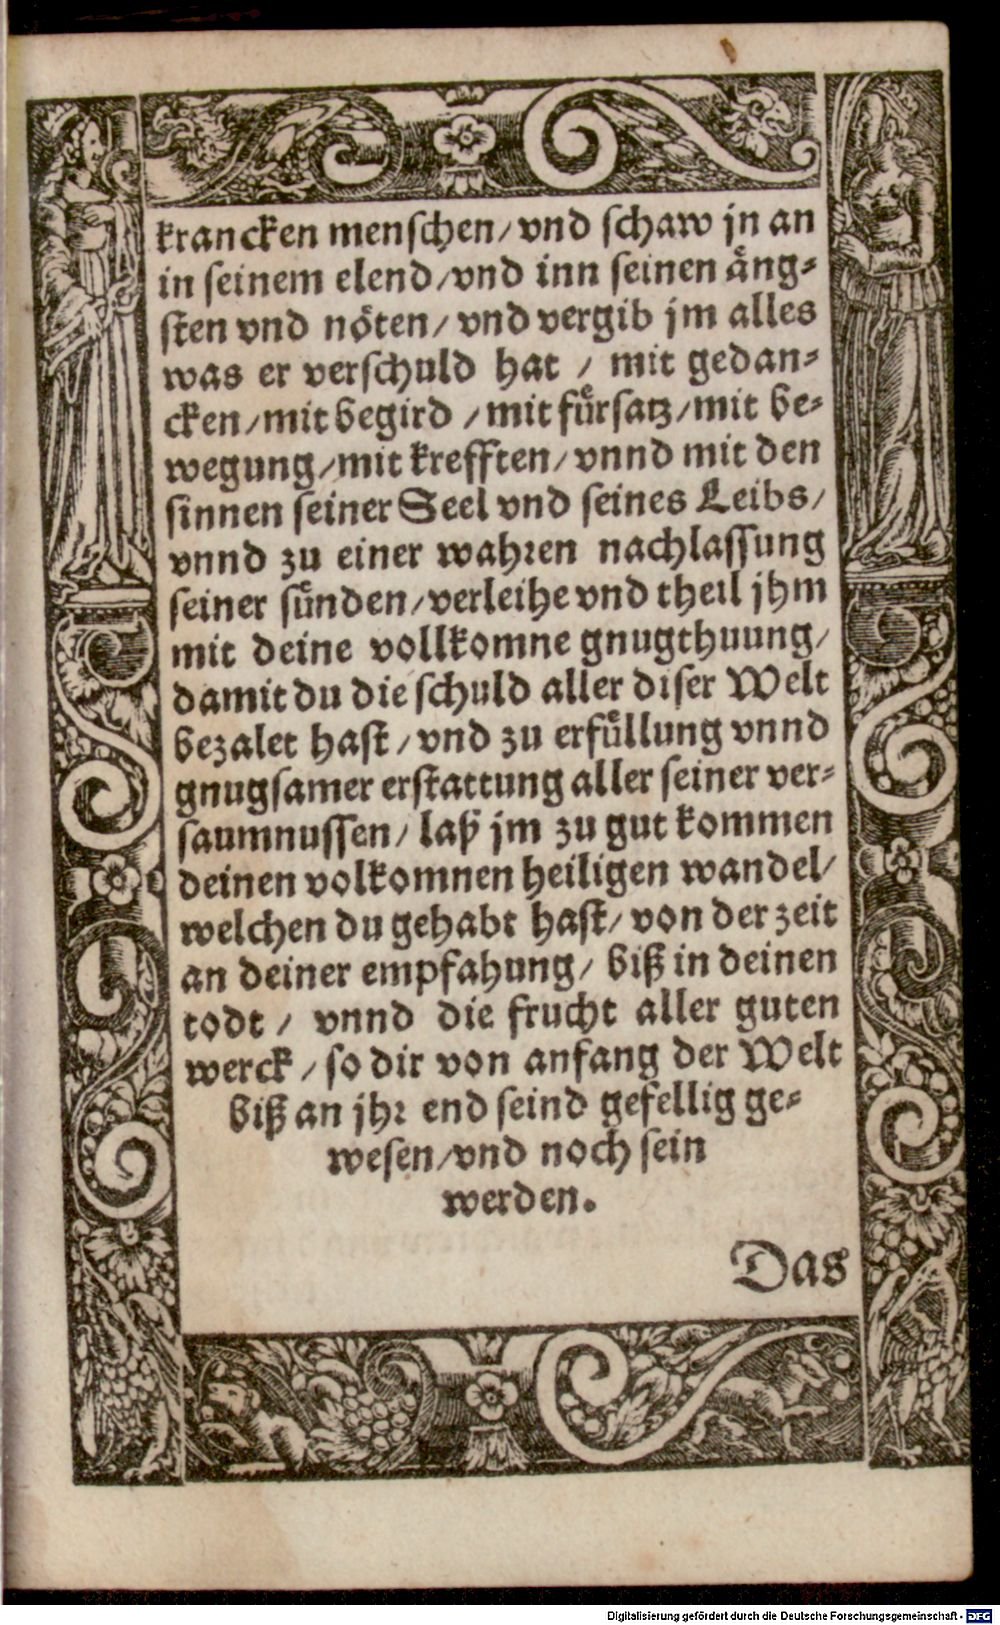 krancken menschen/ vnd schaw jn an
in seinem elend/vnd inn seinen äng⸗
sten vnd nöten/ vnd vergib jm alles
was er verschuld hat / mit gedan⸗
cken/mit begird /mit fürsatz/mit be⸗
wegung/mit krefften/ vnnd mit den
sinnen seiner Seel vnd seines Leibs/
vnnd zu einer wahren nachlassung
seiner sünden/verleihe vnd theil jhm
mit deine vollkomne gnugthuung/
damit du die schuld aller diser Welt
bezalet hast /vnd zu erfüllung vnnd
gnugsamer erstattung aller seiner ver⸗
saumnussen/ laß jm zu gut kommen
deinen volkomnen heiligen wandel/
welchen du gehabt hast/ von der zeit
an deiner empfahung/ biß in deinen
todt / vnnd die frucht aller guten
werck /so dir von anfang der Welt
biß an jhr end seind gefellig ge⸗
wesen/vnd noch sein
werden.
Das
Digitalisierung gefördert durch die Deutsche Forschungsgemeinschaft - DFG